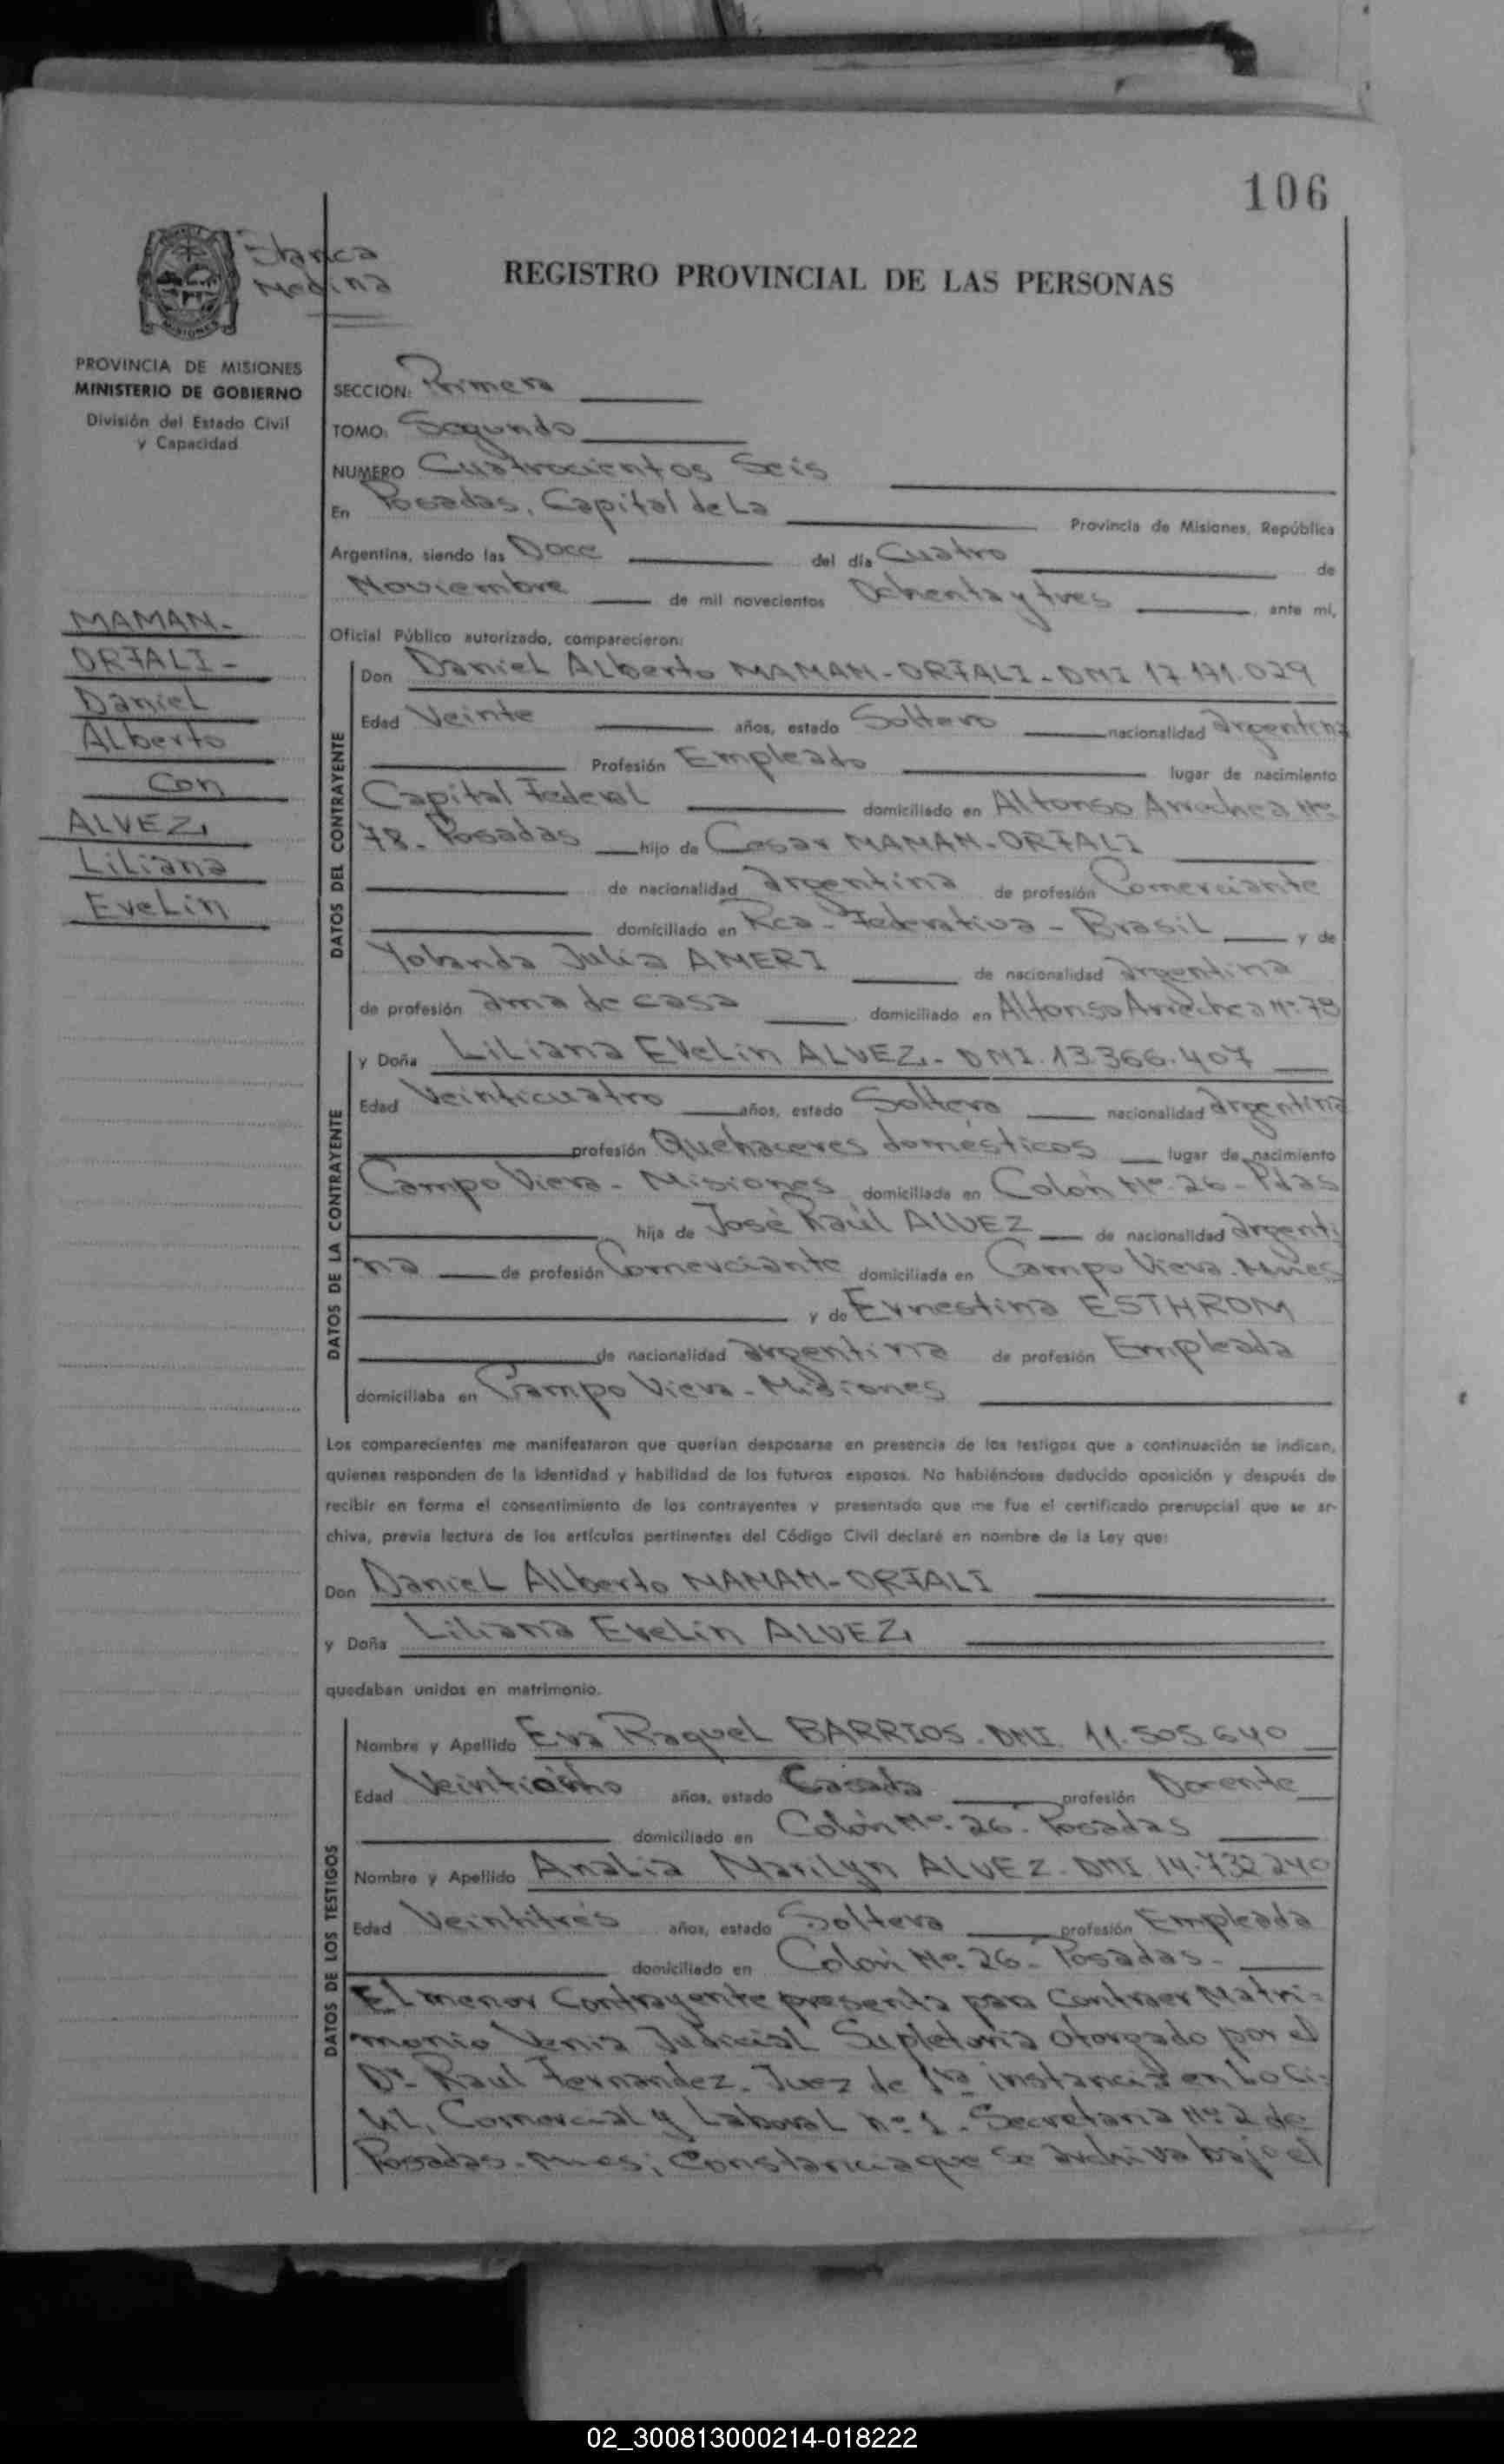 106
Blanca
Medina
REGISTRO PROVINCIAL DE LAS PERSONAS
MISIONES
PROVINCIA DE MISIONES
MINISTERIO DE GOBIERNO
División del Estado Civil
y Capacidad
MAMAN-
ORFALI-
Daniel
Alberto
Con
ALVEZ,
Liliana
Evelin
SECCION: Primera
TOMO: Segundo
NUMERO Cuatrocientos Seis
En Posadas, Capital de La Provincia de Misiones, República
Argentina, siendo las Doce del día Cuatro de
Noviembre de mil novecientos Ochenta y tres, ante mí,
Oficial Público autorizado, comparecieron:
DATOS DEL CONTRAYENTE
Don Daniel Alberto MAMAN-ORFALI-DNI 17.171.029
Edad Veinte años, estado Soltero nacionalidad argentina
Profesión Empleado lugar de nacimiento
Capital Federal domiciliado en Alfonso Arrechea Nº
78- Posadas hijo de Cesar MAMAN-ORFALI
de nacionalidad argentina de profesión Comerciante
domiciliado en Rca- Federativa - Brasil y de
Yolanda Julia AMERI de nacionalidad argentina
de profesión ama de casa domiciliado en Alfonso Arrechea Nº 78
DATOS DE LA CONTRAYENTE
y Doña Liliana Evelin ALVEZ,- DNI. 13.366.407
Edad Veinticuatro años, estado Soltera nacionalidad argentina
profesión Quehaceres domésticos lugar de nacimiento
Campo Viera- Misiones domiciliada en Colón Nº 26- Pdas
hija de José Raúl ALVEZ de nacionalidad argenti
na de profesión Comerciante domiciliada en Campo Viera. Mnes
y de Ernestina ESTHROM
de nacionalidad argentina de profesión Empleada
domiciliaba en Campo Viera- Misiones
Los comparecientes me manifestaron que querían desposarse en presencia de los testigos que a continuación se indican,
quienes responden de la identidad y habilidad de los futuros esposos. No habiéndose deducido oposición y después de
recibir en forma el consentimiento de los contrayentes y presentado que me fue el certificado prenupcial que se ar-
chiva, previa lectura de los artículos pertinentes del Código Civil declaré en nombre de la Ley que:
Don Daniel Alberto MAMAN-ORFALI
y Doña Liliana Evelin ALVEZ,
quedaban unidos en matrimonio.
DATOS DE LOS TESTIGOS
Nombre y Apellido Eva Raquel BARRIOS. DNI. 11.505.640
Edad Veintiocho años, estado Casada profesión Docente
domiciliado en Colón Nº 26- Posadas
Nombre y Apellido Analia Marilyn ALVEZ- DNI 14.732.240
Edad Veintitrés años, estado Soltera profesión Empleada
domiciliado en Colon Nº 26- Posadas-
El menor Contrayente presenta para Contraer Matri-
monio Venia Judicial Supletoria otorgado por el
Dr. Raul Fernandez. Juez de 1ra instancia en Lo Ci-
vil, Comercial y Laboral nº 1- Secretaria Nº 2 de
Posadas. Mnes; Constancia que se archiva bajo el
02_300813000214-018222